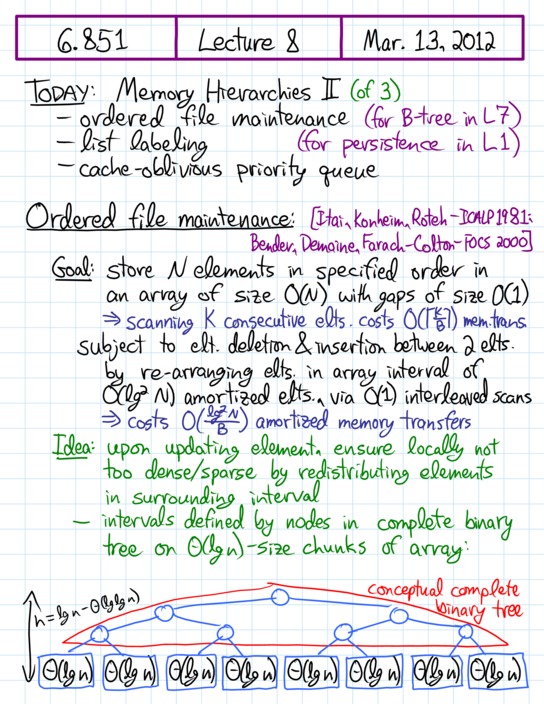 6.851 Lecture 8 Mar. 13, 2012
TODAY: Memory Hierarchies II (of 3)
– ordered file maintenance (for B-tree in L7)
– list labeling (for persistence in L1)
– cache-oblivious priority queue
Ordered file maintenance: [Itai, Konheim, Roteh – ICALP 1981;
Bender, Demaine, Farach-Colton – FOCS 2000]
Goal: store N elements in specified order in
an array of size O(N) with gaps of size O(1)
⇒ scanning K consecutive elts. costs O(⌈K/B⌉) mem. trans.
subject to elt. deletion & insertion between 2 elts.
by re-arranging elts. in array interval of
O(lg² N) amortized elts., via O(1) interleaved scans
⇒ costs O(lg² N/B) amortized memory transfers
Idea: upon updating element, ensure locally not
too dense/sparse by redistributing elements
in surrounding interval
– intervals defined by nodes in complete binary
tree on Θ(lg n)-size chunks of array:
conceptual complete
binary tree
h = lg n – Θ(lg lg n)
Θ(lg n) Θ(lg n) Θ(lg n) Θ(lg n) Θ(lg n) Θ(lg n) Θ(lg n) Θ(lg n)